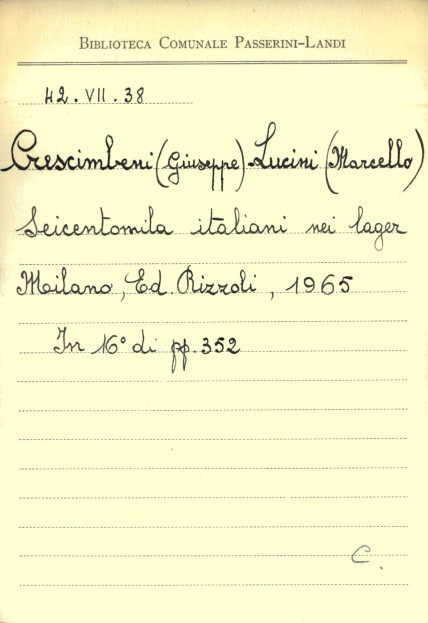 BIBLIOTECA COMUNALE PASSERINI-LANDI
42. VII. 38
Crescimbeni (Giuseppe)-Lucini (Marcello)
Seicentomila italiani nei lager
Milano, Ed. Rizzoli, 1965
In 16° di pp. 352
C.